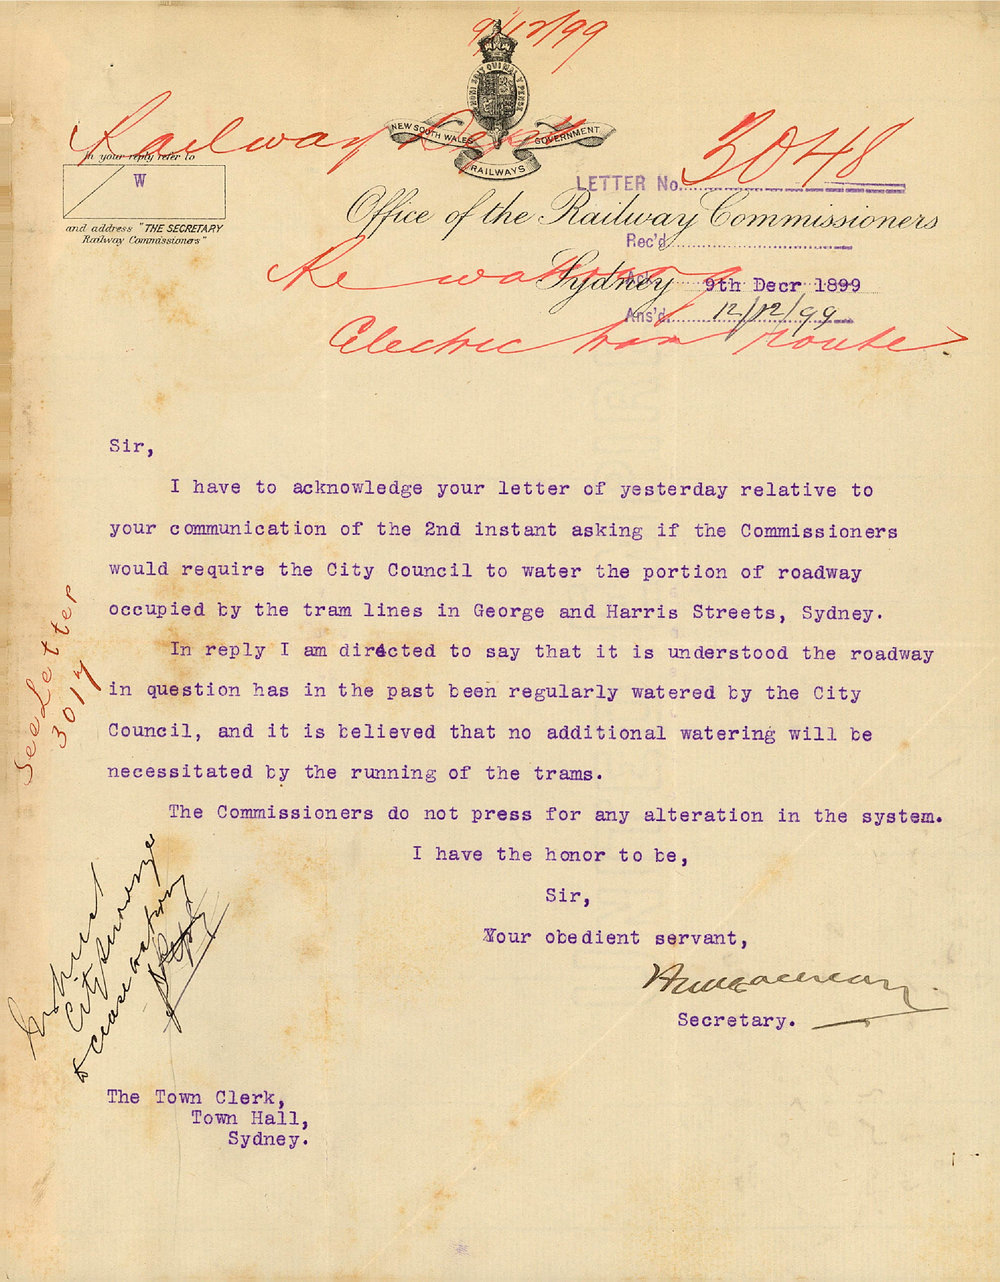 9/12/99
HONI SOIT QUI MAL Y PENSE
NEW SOUTH WALES GOVERNMENT
RAILWAYS
Railway Dept
3048
In your reply refer to
W
and address "THE SECRETARY
Railway Commissioners"
LETTER No.
Office of the Railway Commissioners
Rec'd
Sydney
Ack
9th Decr 1899
Ans'd 12/12/99
Re watering
Electric tram route
Sir,
I have to acknowledge your letter of yesterday relative to
your communication of the 2nd instant asking if the Commissioners
would require the City Council to water the portion of roadway
occupied by the tram lines in George and Harris Streets, Sydney.
In reply I am directed to say that it is understood the roadway
in question has in the past been regularly watered by the City
Council, and it is believed that no additional watering will be
necessitated by the running of the trams.
The Commissioners do not press for any alteration in the system.
I have the honor to be,
Sir,
Your obedient servant,
Secretary.
See Letter
3017
Instruct
City Surveyor
to cease watering
The Town Clerk,
Town Hall,
Sydney.